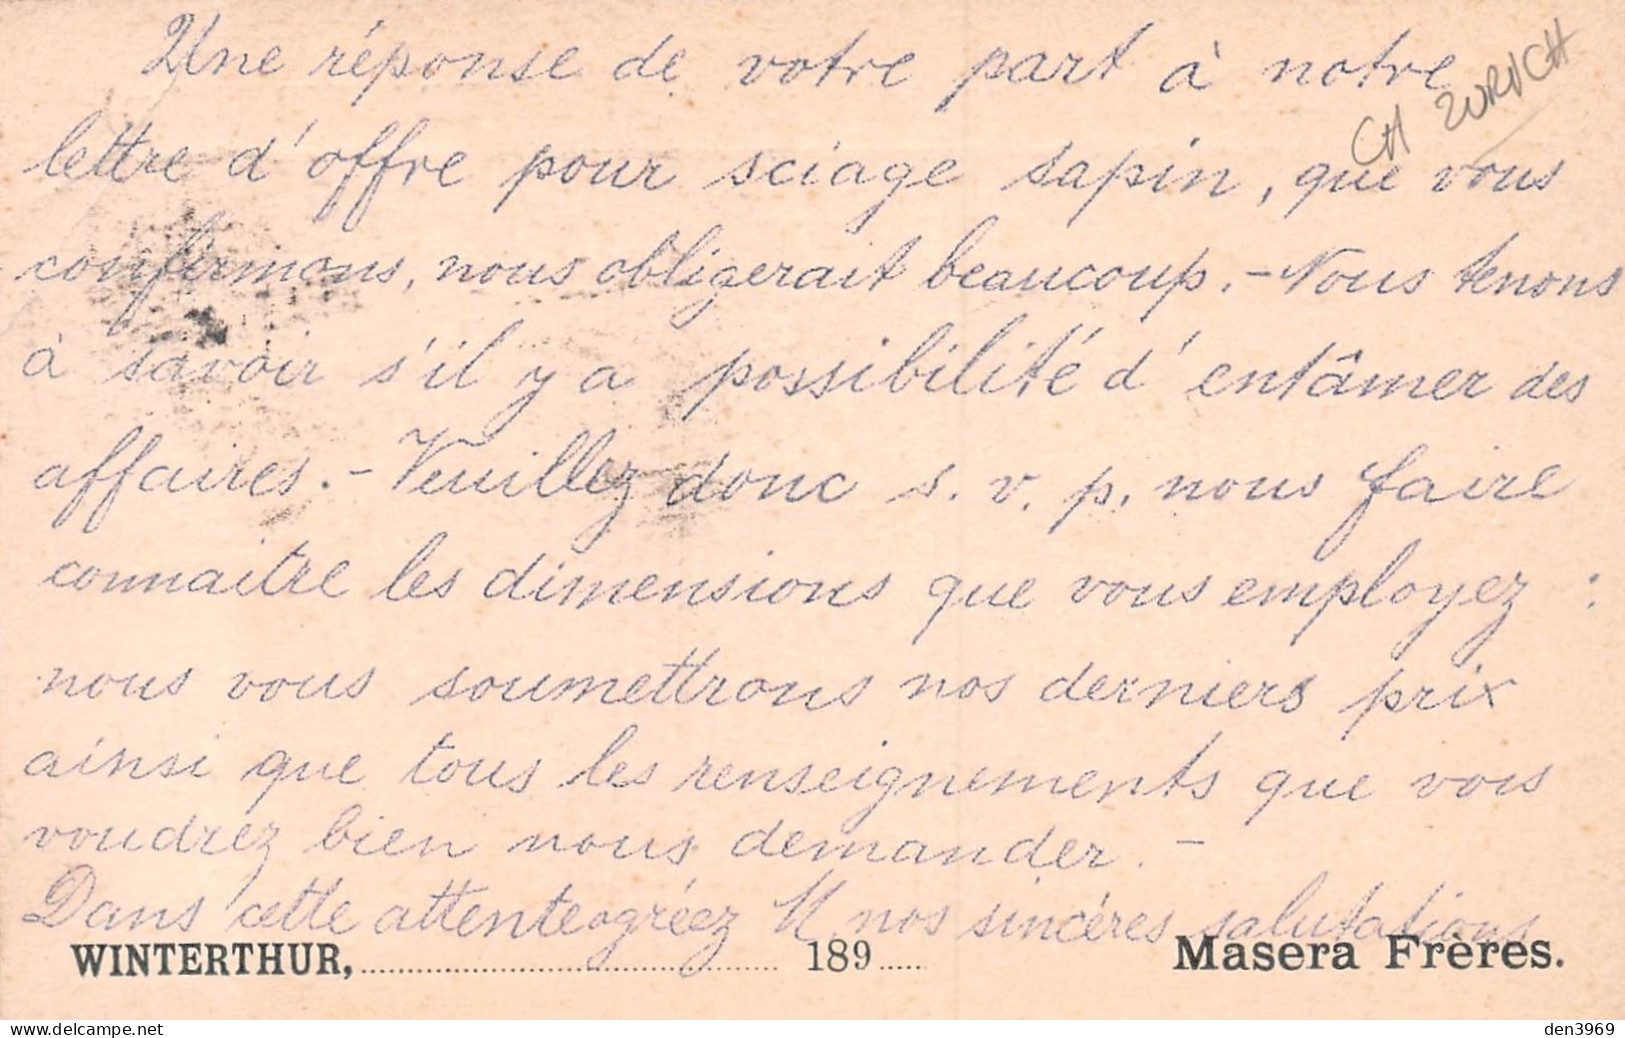 Une réponse de votre part à notre
CH ZURICH
lettre d'offre pour sciage sapin, que vous
confirmons, nous obligerait beaucoup. - Nous tenons
à savoir s'il y a possibilité d'entâmer des
affaires. - Veuillez donc s. v. p. nous faire
connaitre les dimensions que vous employez :
nous vous soumettrons nos derniers prix
ainsi que tous les renseignements que vous
voudrez bien nous demander. -
Dans cette attente agréez M. nos sincéres salutations
WINTERTHUR, 189 Masera Frères.
www.delcampe.net den3969